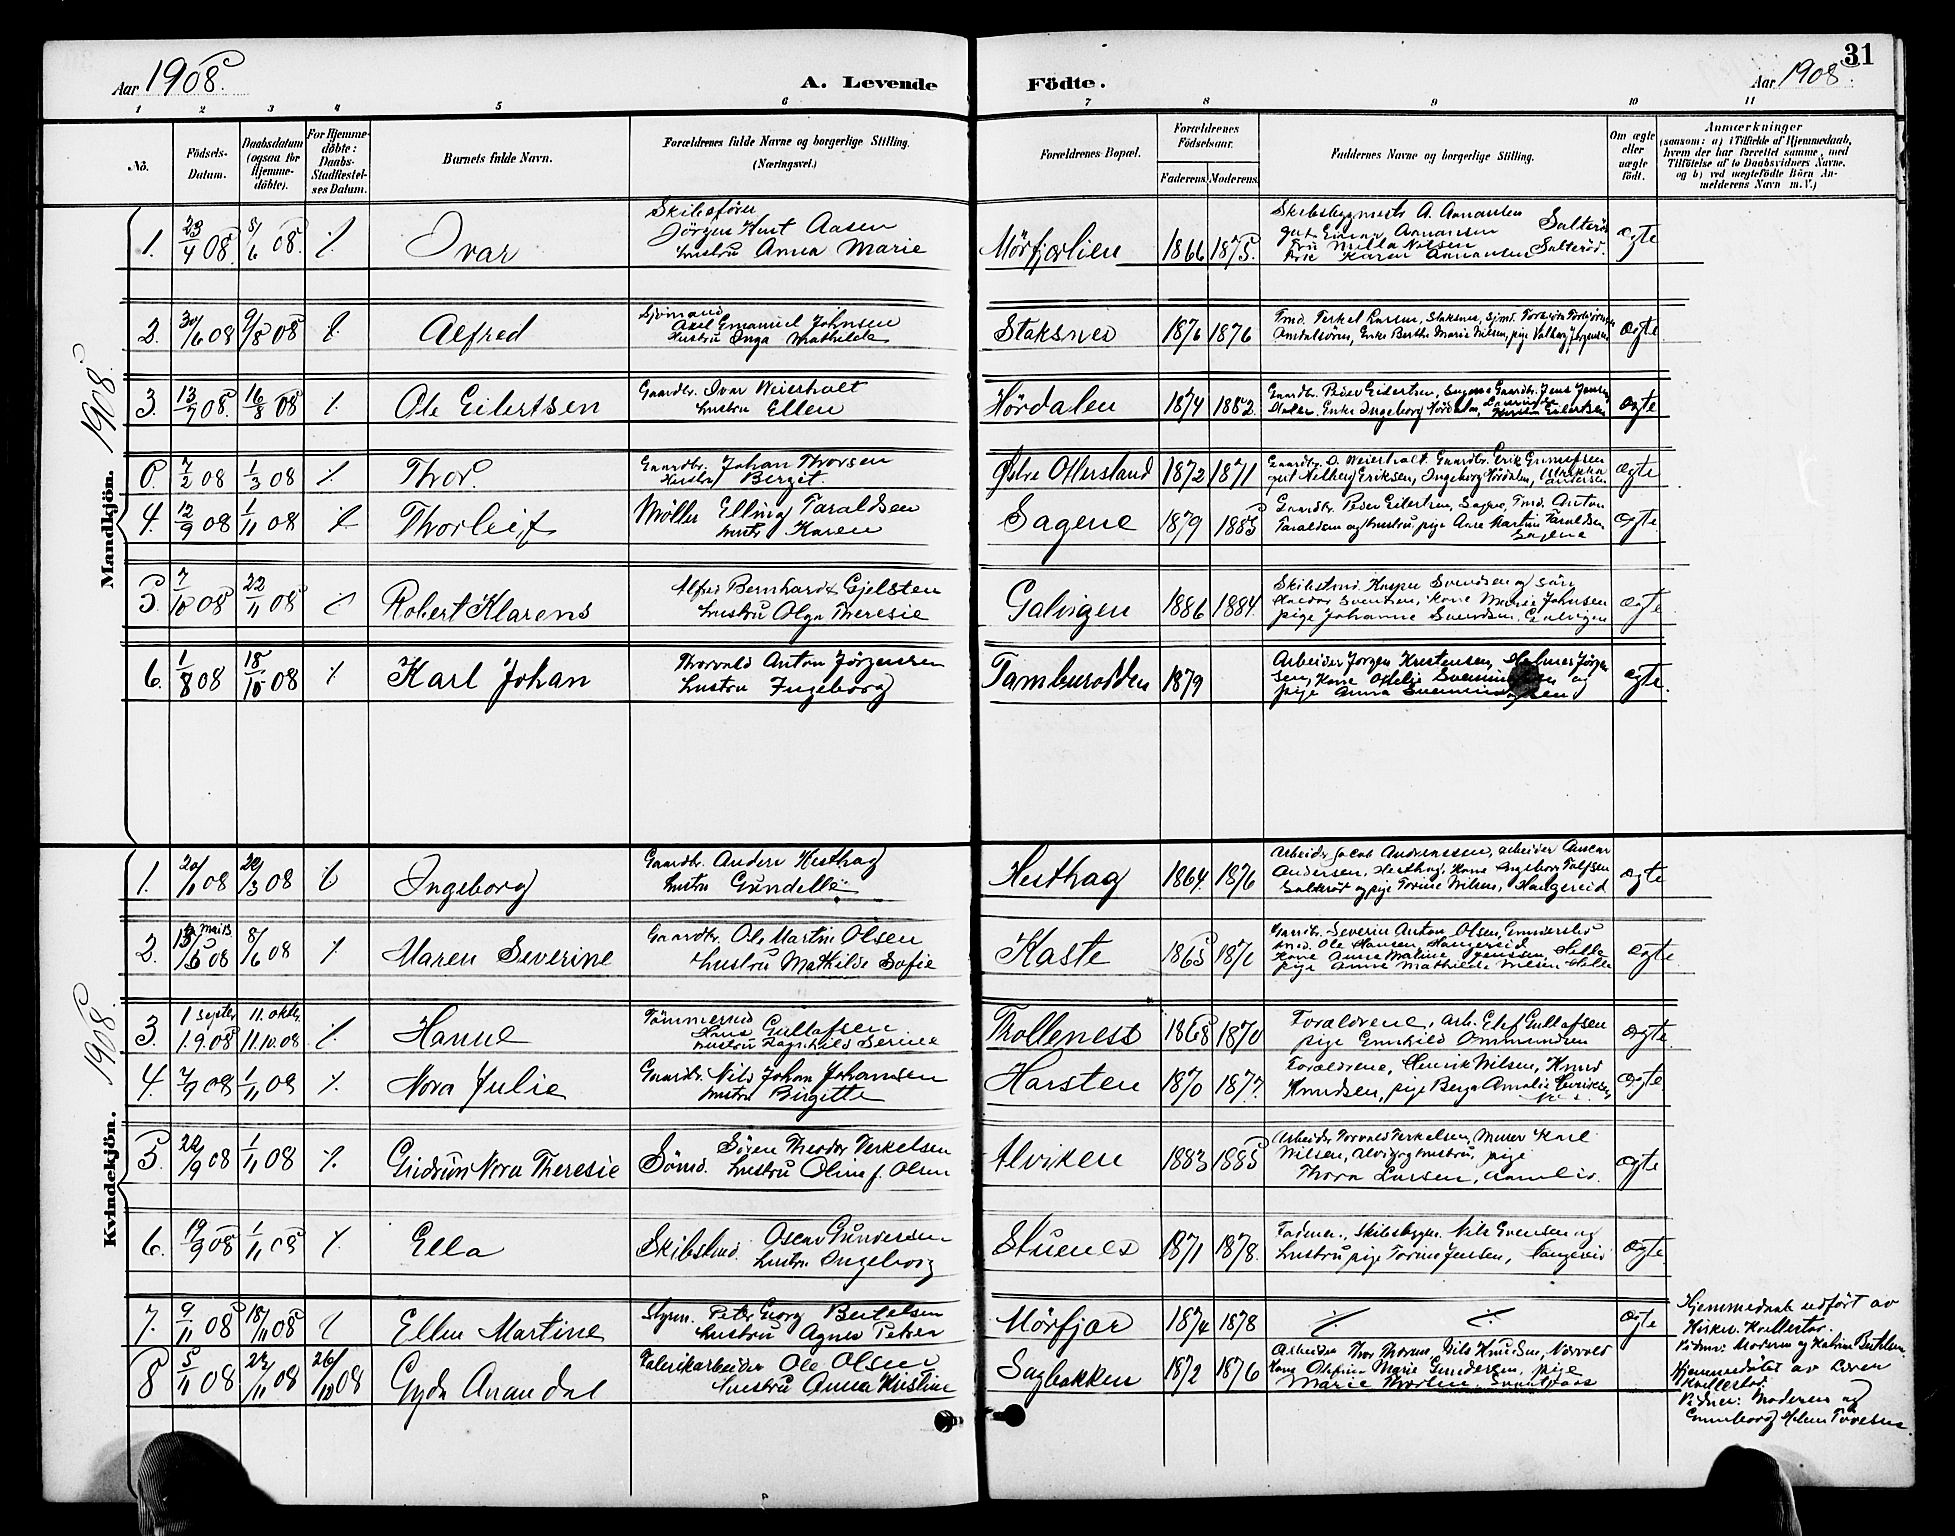 31
Aar 1908. A. Levende Födte. Aar 1908.
1 2 3 4 5 6 7 8 9 10 11
No. Födsels-Datum. Daabsdatum (ogsaa for Hjemme-döbte). For Hjemme-döbte: Daabs-Stadfæstel-ses Datum. Barnets fulde Navn. Forældrenes fulde Navne og borgerlige Stilling. (Næringsvei.) Forældrenes Bopæl. Forældrenes Födselsaar. Faderens. Moderens. Faddernes Navne og borgerlige Stilling. Om ægte eller uægte födt. Anmærkninger (saasom: a) i Tilfælde af Hjemmedaab, hvem der har forrettet samme, med Tilföielse af to Daabsvidners Navne, og b) ved uægtefödte Börn Anmelderens Navn m.V.)
Mandkjön. 1908.
1. 23/4 08. 8/6 08. Ivar
Skibsfører
Jörgen Knut Aasen
hustru Anna Marie
Mörfjærlien 1866 1875.
Skibsbygmester A. Aanansen Salteröd
gut Einar Aanansen
Fru Milla Nilsen
Frk Karen Aanansen Salteröd.
ægte
2. 30/6 08 9/8 08 Alfred
Sjömand
Axel Emanuel Johnsen
Hustru Inga Mathilde
Staksnes 1876 1876
Tmd. Terkel Larsen, Staksnes, Sjmd.
Enke Berthe Marie Nilsen, pige Valborg Jörgensen
ægte
3. 13/7 08. 16/8 08 Ole Eilertsen
Gaardbr. Ivar Weierholt
hustru Ellen
Hördalen 1874 1882.
Gaardbr. Peder Eilertsen, Sagene Gaardbr. Jens Jensen
Enke Ingeborg Hördalen, Eilertsen
ægte
0. 7/2 08 1/3 08 Thor.
Gaardbr. Johan Thorsen
Hustru Bergit.
Østre Ottersland 1872 1871
Gaardbr. O. Weierholt. Gaardbr. Erik Gunnufsen
gut Eriksen, Ingeborg Hördalen, Andersen
ægte
4. 12/9 08 1/11 08 Thorleif
Möller Elling Taraldsen
hustr Karen
Sagene 1879 1885
Gaardbr. Peder Eilertsen, Sagene, Tmd. Anton
Taraldsen og hustru, pige Ane Martine Taraldsen
Sagene
ægte
5. 7/10 08 22/11 08 Robert Klarens
Alfred Bernhardt Gjelsten
hustru Olga Theresie
Galvigen 1886 1884.
Skibstmd. Kasper Svendsen og sön
Svendsen, Kone Marie Johnsen
pige Johanne Svendsen. Galvigen
ægte
6. 1/8 08 18/10 08 Karl Johan
Thorvald Anton Jörgensen
hustru Ingeborg
Tamburodden 1879
Arbeider Jorgen Kristensen, Helmer Jörgen
sen, Kone Ofelie og
pige Anna
ægte.
Kvindekjön. 1908.
1. 20/1 08 22/3 08 Ingeborg
Gaardbr. Anders Hesthag
hustru Gundelle
Hesthag 1864. 1876
Arbeider Jacob Andreassen, arbeider Anders
Andersen, Hesthag, Kone Ingebor Tolfsen
Salteröd og pige Torine Nilsen, Haugereid
ægte
2. 13/5 08 8/6 08 Maren Severine
Gaardbr. Ole Martin Olsen
hustru Mathilde Sofie
Kaste 1865 1871
Gaardbr. Severin Anton Olsen, Gundersbo
Smed. Ole Hansen, Haugereid
Kone Anne Maline Jenssen, Helle
pige Anne Mathilde Nilsen Helle
ægte.
3. 1 septbr 1.9.08 11. oktbr. 11.10.08 Hanne
Tömmermd
Hans Gullafsen
hustru Ragnhild Serine
Trollenes 1868 1870
Forældrene, Arb. Elef Gullafsen
pige Gunhild Ommundsen
ægte.
4. 7/9 08 1/11 08 Nora Julie
Gaardbr. Nils Johan Johansen
hustru Birgitte
Harsten 1870 1877.
Forældrene, Henrik Nilsen, Knud
Knudsen, pige Berge Amalie Henriksen
ægte
5. 22/9 08 1/11 08 Gudrun Nora Theresie
Sömd. Sören Theodor Terkelsen
hustru Olina f. Olsen
Alviken 1883 1885
Arbeider Torvald Terkelsen, Murer Karl
Nilsen, Alvig og hustru, pige
Thora Larsen,
ægte
6. 19/9 08 1/11 08 Ella
Skibstmd. Oscar Gundersen
hustru Ingeborg
Stuenes 1871 1878.
Faderen, Skibsbygm. Nils Evensen og
hustru, pige Torine Jensen, Haugereid
ægte
7. 9/11 08 18/11 08 Ellen Martine
Styrm. Peter Georg Bertelsen
hustru Agnes Petrea
Mörfjær 1874 1878
ægte
Hjemmedaab udfört av
Kirkes. Kvellestad.
Vidner: Moderen og Katrine Bertelsen.
8 5/11 08 27/11 08 26/12 08 Gyda Anandal
Fabrikarbeider Ole Olsen
hustru Anna Kristine
Sagbakken 1872 1876
Arbeider Thor Thorsen, Nils Knudsen,
Kone Marie Gundersen, pige
Marie Thorsen,
ægte
Hjemmedöbt av Læreren
Kvellestad
Vidner: Moderen og
Gunneborg Helene Toresen.